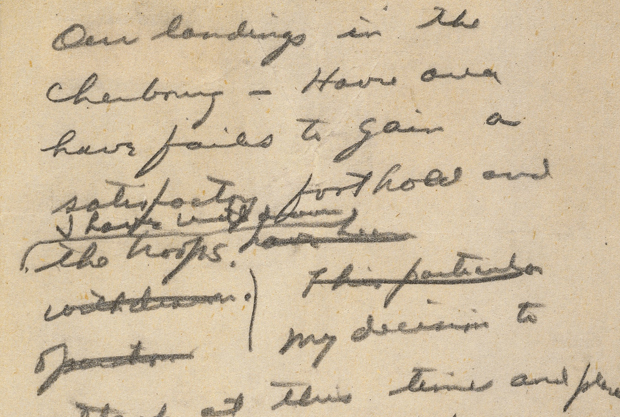 Our landings in the
Cherbourg - Havre area
have failed to gain a
satisfactory foothold and
I have withdrawn
the troops. have been
withdrawn. This particular
My decision to
operation
attack at this time and place